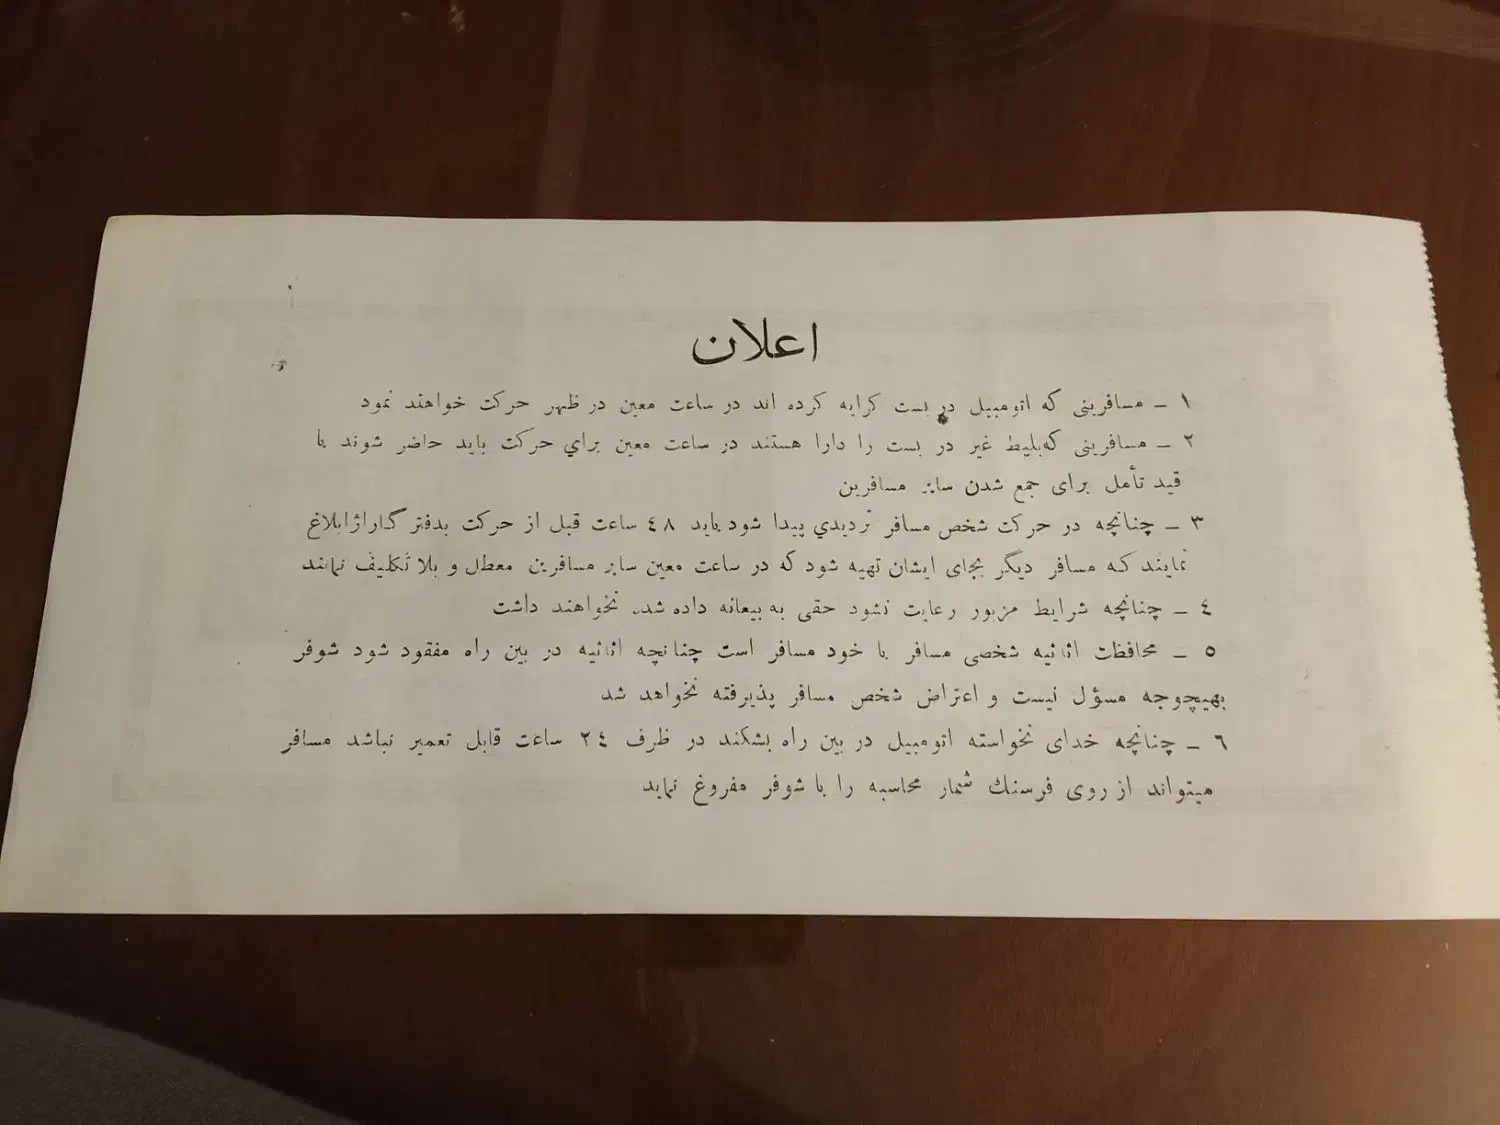 اعلان
۱ ـ مسافرینی که اتومبیل در بست کرایه کرده اند در ساعت معین در ظهر حرکت خواهند نمود
۲ ـ مسافرینی که‌بلیط غیر در بست را دارا هستند در ساعت معین براي حرکت باید حاضر شوند با
قید تأمل برای جمع شدن سایر مسافرین
۳ ـ چنانچه در حرکت شخص مسافر تردیدي پیدا شود باید ٤٨ ساعت قبل از حرکت بدفتر گاراژابلاغ
نمایند که مسافر دیگر بجای ایشان تهیه شود که در ساعت معین سایر مسافرین معطل و بلا تکلیف نمانند
٤ ـ چنانچه شرایط مزبور رعایت نشود حقی به بیعانه داده شده نخواهند داشت
٥ ـ محافظت اثاثیه شخصی مسافر با خود مسافر است چنانچه اثاثیه در بین راه مفقود شود شوفر
بهیچوجه مسؤل نیست و اعتراض شخص مسافر پذیرفته نخواهد شد
٦ ـ چنانچه خدای نخواسته اتومبیل در بین راه بشکند در ظرف ٢٤ ساعت قابل تعمیر نباشد مسافر
میتواند از روی فرسنك شمار محاسبه را با شوفر مفروغ نماید